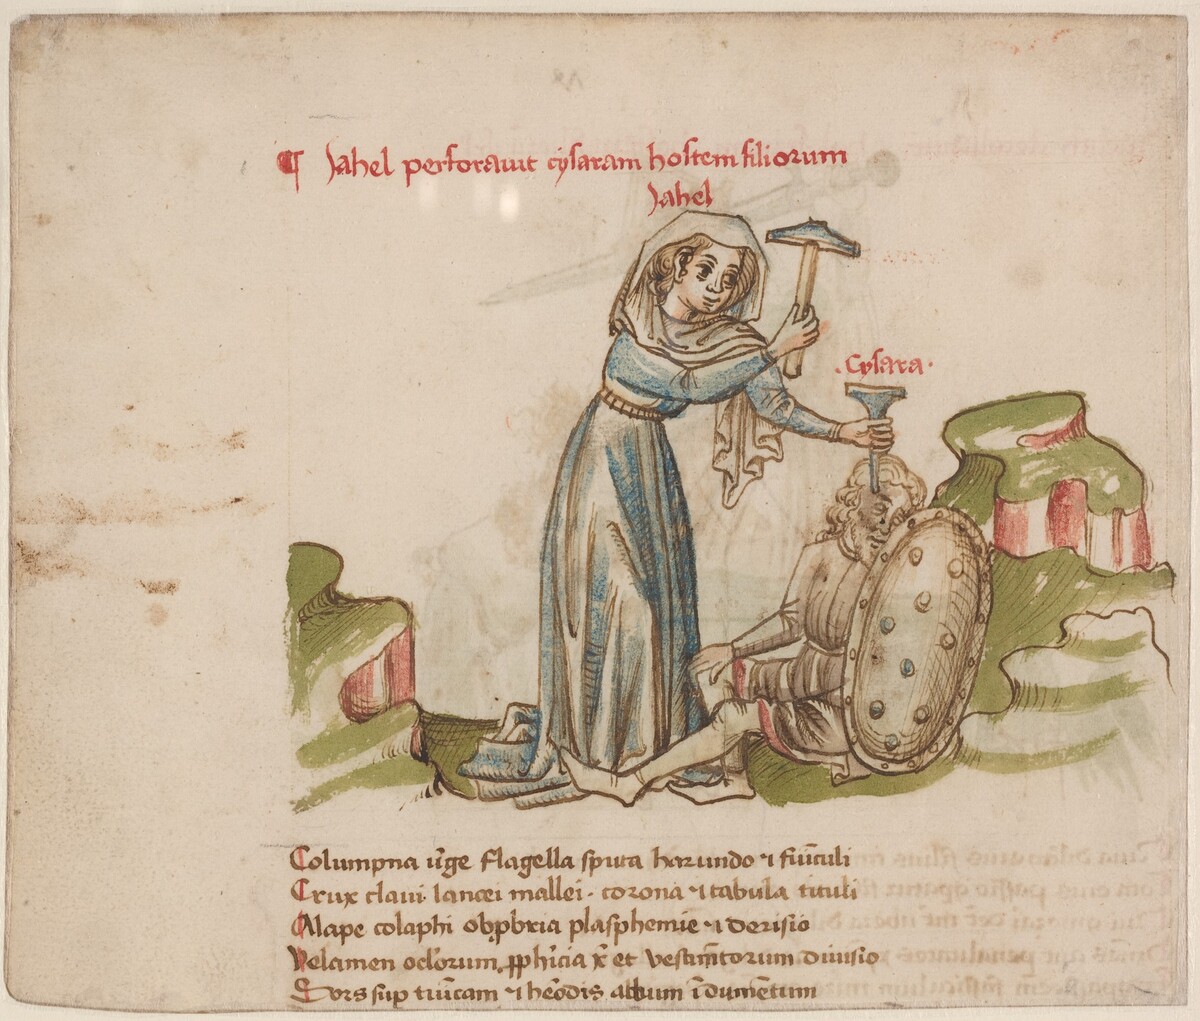 ¶ Jahel perforauit cysaram hostem filiorum
Jahel
Cysara
Columpna uirge flagella sputa harundo ⁊ funiculi
Crux claui lancei mallei corona ⁊ tabula tituli
Alape colaphi obprobria plasphemie ⁊ derisio
Velamen oculorum prophicia et vestimentorum diuisio
Sors tunicam ⁊ album